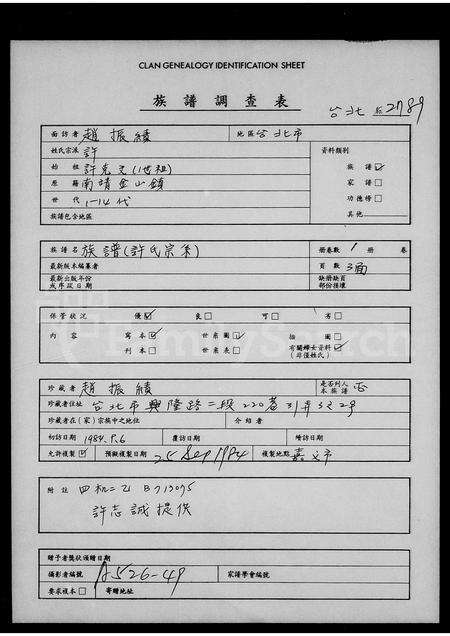 CLAN GENEALOGY IDENTIFICATION SHEET
族譜調查表
台北 2789
面訪者 趙振績 地區 台北市
姓氏宗派 許 資料類別
始祖 許克文(1世祖) 族譜 ✓
原籍 南靖金山鎮 家譜 □
世代 1-14代 功德榜 □
族譜包含地區 其他
族譜名 族譜(許氏宗系) 冊卷數 1 冊 卷
最新版本編纂者 頁數 3面
最新出版年份或序政日期 缺冊缺頁部份損壞
保管狀況 優 ✓ 良 □ 可 □ 劣 □
內容 寫本 ✓ 世系圖 ✓ 插圖 □
刊本 □ 世系表 □ 有關婦女資料 ✓ (非僅姓氏)
珍藏者 趙振績 是否列入本族譜 否
珍藏者住址 台北市興隆路二段220巷31弄3之2号
珍藏者在(家)宗族中之地位 介紹者
初訪日期 1984.8.6 覆訪日期 續訪日期
允許複製 ✓ 預擬複製日期 25 Sep 1984 複製地點 嘉义市
附註 四机二乙 B713095
許志誠提供
贈予者獎狀頒贈日期
攝影者編號 A526-49 家譜學會編號
要求複本 □ 寄贈地址